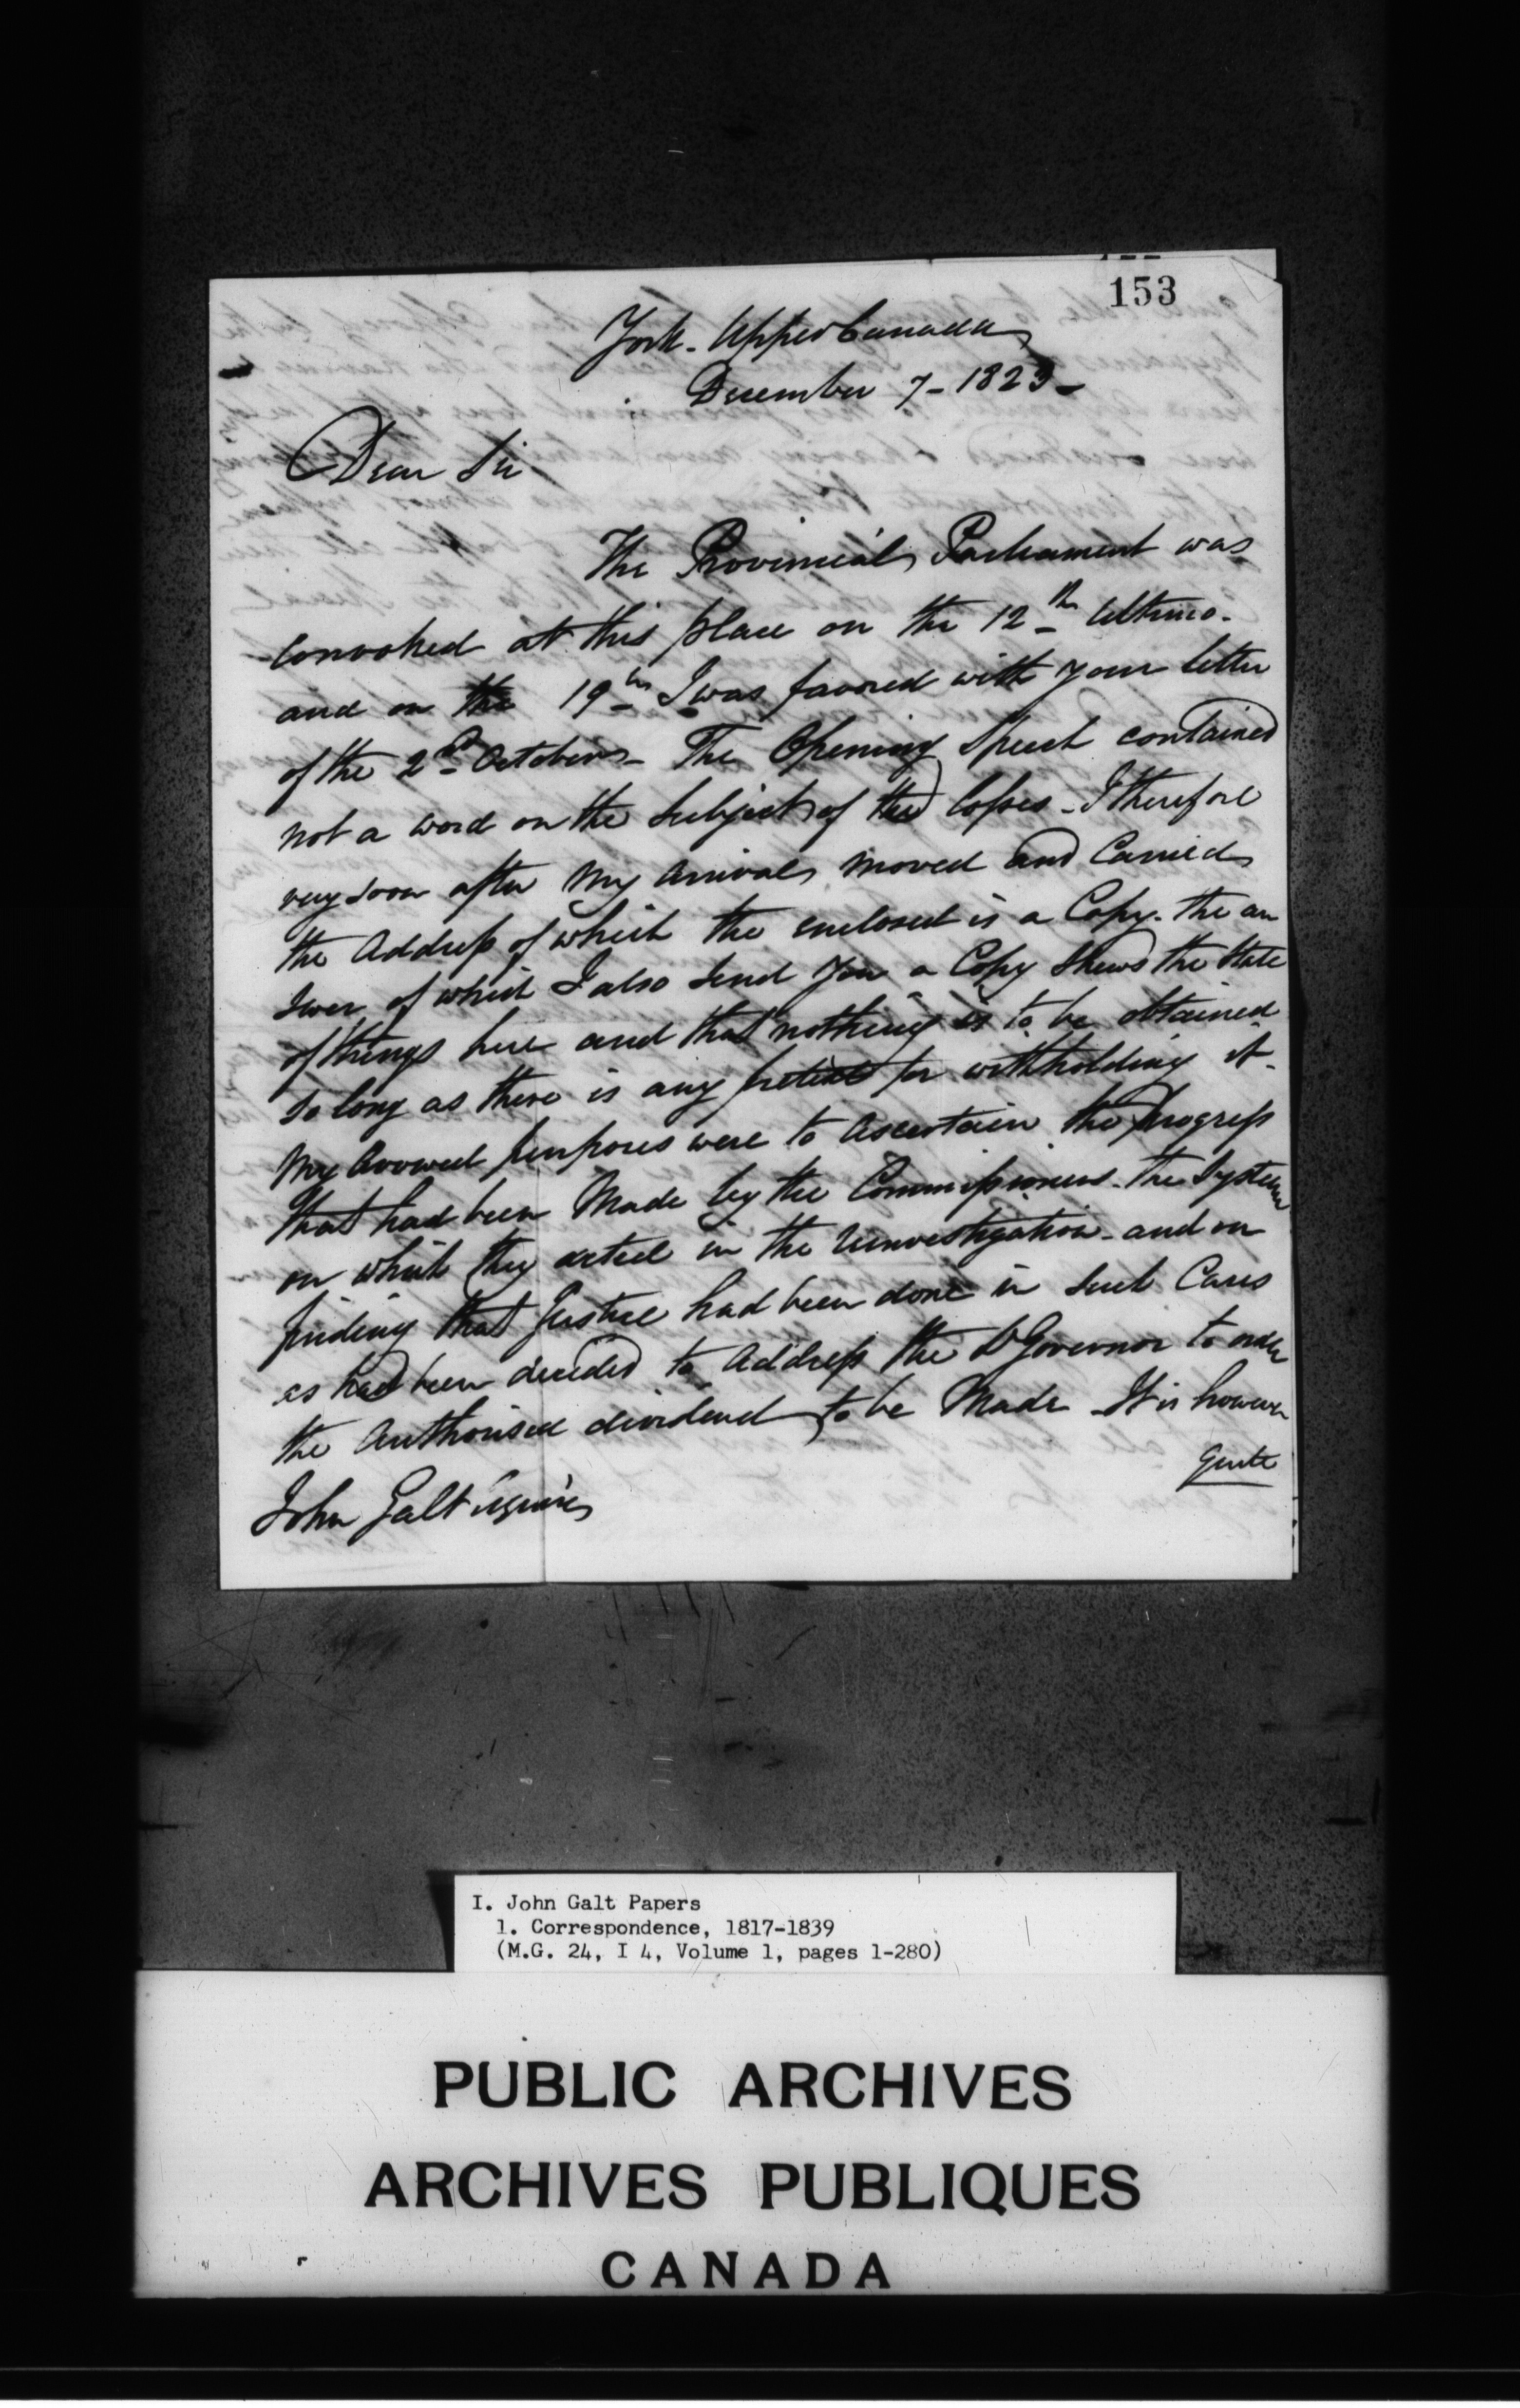 153
York. Upper Canada
December 7 - 1823 -
Dear Sir
The Provincial Parliament was
convoked at this place on the 12th Ultimo.
and on the 19th I was favored with your letter
of the 2d October - The Opening Speech contained
not a word on the Subject of the losses - I therefore
very soon after my arrival moved and Carried
the Address of which the enclosed is a Copy. The an
swer of which I also send you a Copy shews the State
of things here and that nothing is to be obtained
so long as there is any pretext for withholding it -
My avowed purposes were to ascertain the progress
that had been Made by the Commissioners. The System
on which they acted in the reinvestigation - and on
finding that Justice had been done in such Cases
as had been decided to Address the Lt Governor to order
the Authorised dividend to be Made - It is however
quite
John Galt Esquire
I. John Galt Papers
1. Correspondence, 1817-1839
(M.G. 24, I 4, Volume 1, pages 1-280)
PUBLIC ARCHIVES
ARCHIVES PUBLIQUES
CANADA